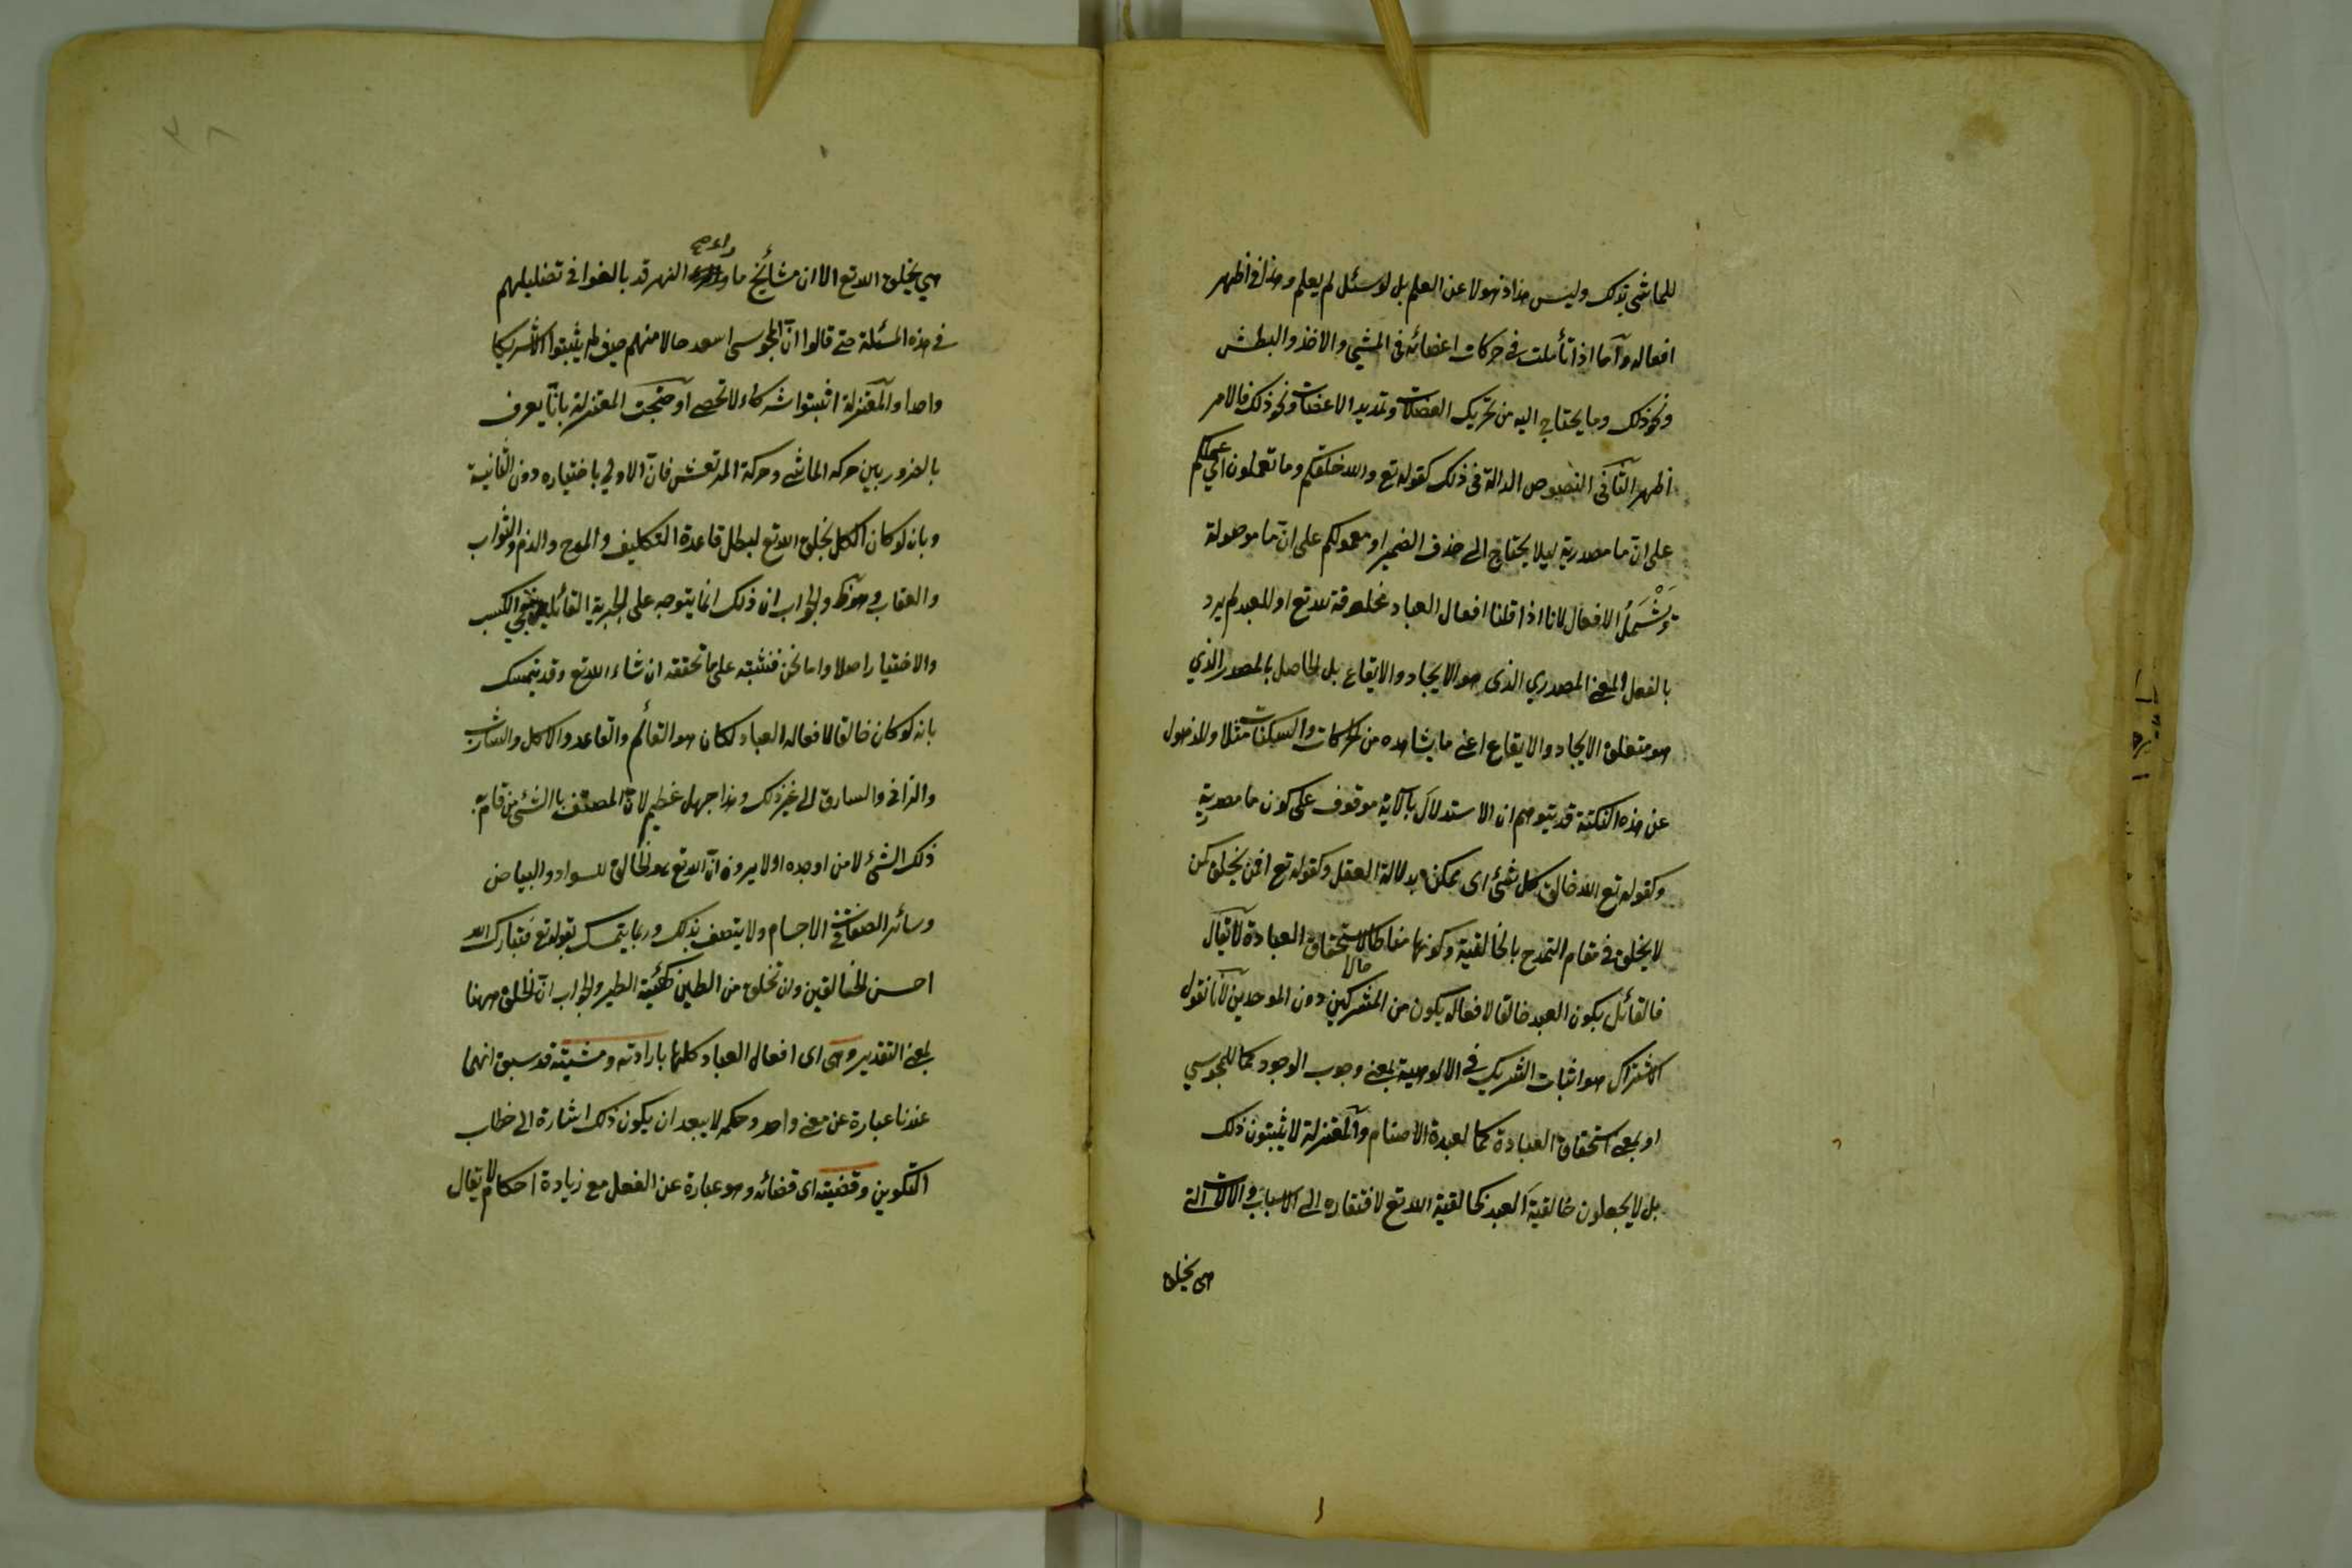 للماشي بذلك وليس هذا ذهولا عن العلم بل لو سئل لم يعلم وهذا في اظهر
افعاله وأما اذا تأملت في حركات اعضائه في المشي والاخذ والبطش
ونحو ذلك وما يحتاج اليه من تحريك العضلات وتمديد الاعصاب ونحو ذلك فالامر
اظهر الثاني النصوص الدالة في ذلك كقوله تع والله خلقكم وما تعملون اي عملكم
على ان ما مصدرية ليلا يحتاج الى حذف الضمير او معمولكم على ان ما موصولة
ويَشْمَلُ الافعال لانا اذا قلنا افعال العباد مخلوقة لله تع او للعبد لم يرد
بالفعل المعنى المصدري الذي هو الايجاد والايقاع بل الحاصل بالمصدر الذي
هو متعلق الايجاد والايقاع اعني ما يشاهده من الحركات والسكنات مثلا وللذهول
عن هذه النكتة قد يتوهم ان الاستدلال بالاية موقوف على كون ما مصدرية
وكقوله تع الله خالق كل شئ اى ممكن بدلالة العقل وكقوله تع افمن يخلق كمن
لا يخلق في مقام التمدح بالخالقية وكونها مناطا لاستحقاق العبادة لا يقال
فالقائل بكون العبد خالقا لافعاله يكون من المشركين دون الموحدين لانا نقول
حالا
الاشتراك هو اثبات الشريك في الالوهية بمعنى وجوب الوجود كما للمجوسي
او بمعنى استحقاق العبادة كما لعبدة الاصنام والمعتزلة لا يثبتون ذلك
بل لا يجعلون خالقية العبد كخالقية الله تع لافتقاره الى الاسباب والالات التي
هي بخلق
هي بخلق الله تع الا ان مشائخ ما وراء النهر قد بالغوا في تضليلهم
في هذه المسئلة حتى قالوا ان المجوسي اسعد حالا منهم حيث لم يثبتوا الا شريكا
واحدا والمعتزلة اثبتوا شركاء لا تحصى واحتجت المعتزلة بانا يعرف
بالضرور بين حركه الماشي وحركة المرتعش فان الاولي باختياره دون الثانية
وبانه لو كان الكل بخلق الله تع لبطل قاعدة التكليف والمدح والذم والثواب
والعقاب وهو ظ والجواب ان ذلك انما يتوجه على الجبرية القائلين بنفي الكسب
والاختيار اصلا واما نحن فنثبته على ما نحققه ان شاء الله تع وقد يتمسك
بانه لو كان خالقا لافعال العباد لكان هو القائم والقاعد والاكل والشارب
والزاني والسارق الى غير ذلك وهذا جهل عظيم لان المتصف بالشئ من قام به
ذلك الشئ لا من اوجده اولا يرون ان الله تع هو الخالق للسواد والبياض
وسائر الصفات في الاجسام ولا يتصف بذلك وربما يتمسك بقوله تع فتبارك الله
احسن الخالقين واذ تخلق من الطين كهيئة الطير والجواب ان الخلق ههنا
بمعنى التقدير وهى اى افعال العباد كلها بارادته ومشيته قد سبق انهما
عندنا عبارة عن معنى واحد وحكمه لا يبعد ان يكون ذلك اشارة الى خطاب
التكوين وقضيته اى قضائه وهو عبارة عن الفعل مع زيادة احكام لا يقال